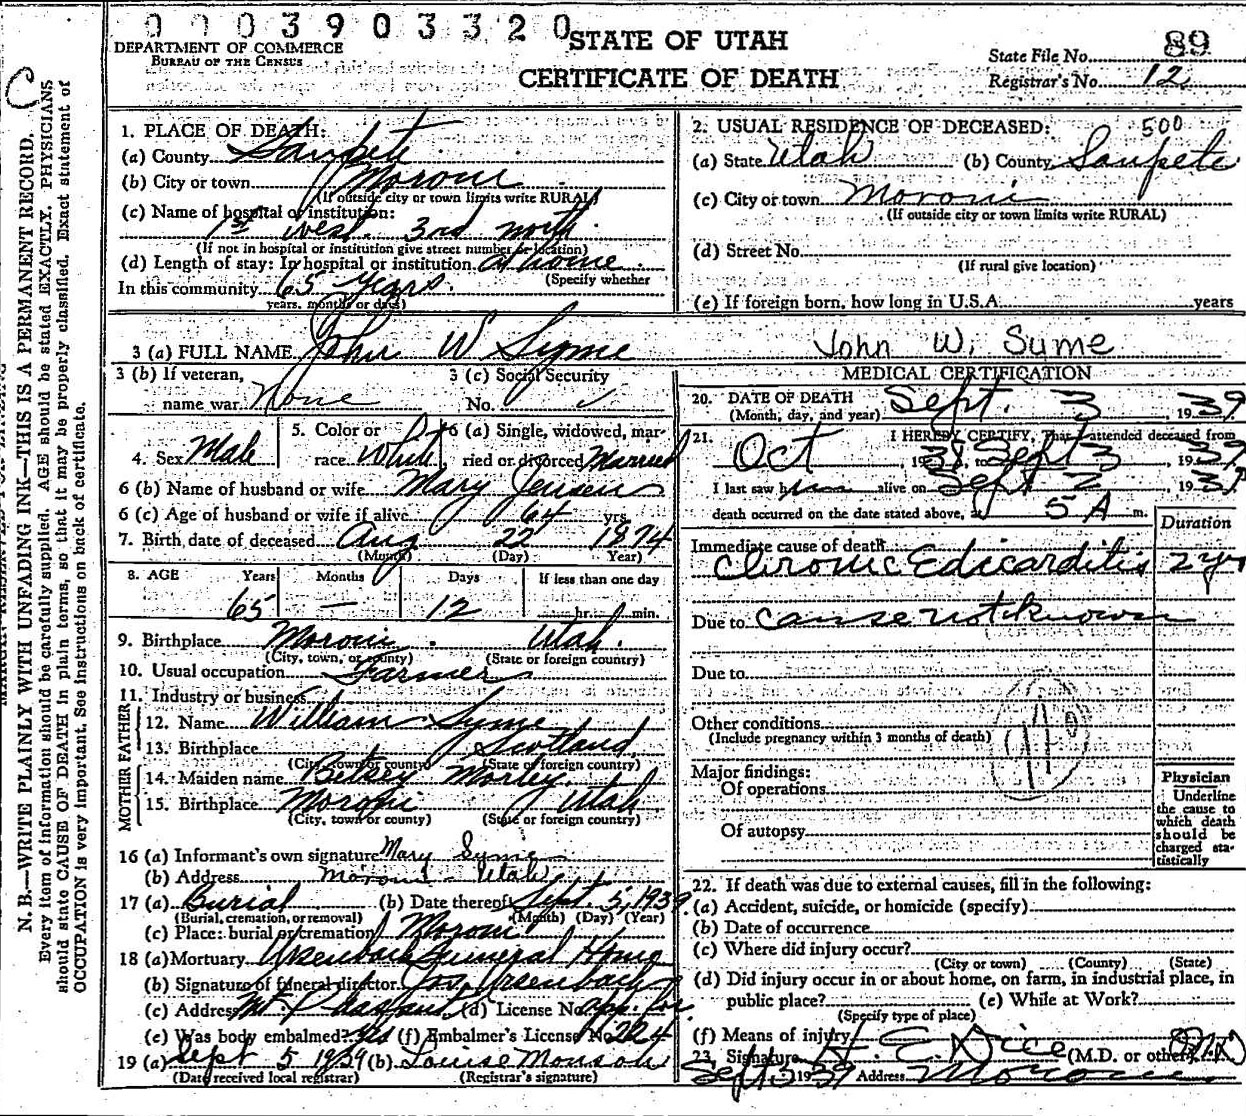 0003903320
DEPARTMENT OF COMMERCE
BUREAU OF THE CENSUS
STATE OF UTAH
CERTIFICATE OF DEATH
State File No. 89
Registrar's No. 12
C
N. B.—WRITE PLAINLY WITH UNFADING INK—THIS IS A PERMANENT RECORD.
Every item of information should be carefully supplied. AGE should be stated EXACTLY. PHYSICIANS
should state CAUSE OF DEATH in plain terms, so that it may be properly classified. Exact statement of
OCCUPATION is very important. See instructions on back of certificate.
1. PLACE OF DEATH:
(a) County Sanpete
(b) City or town Moroni
(If outside city or town limits write RURAL)
(c) Name of hospital or institution:
1st west 3rd north
(If not in hospital or institution give street number or location)
(d) Length of stay: In hospital or institution at home
(Specify whether
In this community 65 Years.
years, months or days)
2. USUAL RESIDENCE OF DECEASED: 500
(a) State Utah (b) County Sanpete
(c) City or town Moroni
(If outside city or town limits write RURAL)
(d) Street No.
(If rural give location)
(e) If foreign born, how long in U.S.A. years
3 (a) FULL NAME John W Syme John W. Syme
3 (b) If veteran,
name war None
3 (c) Social Security
No.
4. Sex Male
5. Color or
race White
6 (a) Single, widowed, mar-
ried or divorced Married
6 (b) Name of husband or wife Mary Jensen
6 (c) Age of husband or wife if alive 64 yrs.
7. Birth date of deceased Aug 22 1874
(Month) (Day) Year)
8. AGE Years Months Days If less than one day
65 — 12 hr. min.
9. Birthplace Moroni Utah.
(City, town, or county) (State or foreign country)
10. Usual occupation Farmer
11. Industry or business
FATHER
12. Name William Syme
13. Birthplace Scotland
(City, town or county) (State or foreign country)
MOTHER
14. Maiden name Betsey Morley
15. Birthplace Moroni Utah
(City, town or county) (State or foreign country)
16 (a) Informant's own signature Mary Syme
(b) Address Moroni - Utah
17 (a) Burial (b) Date thereof Sept. 5, 1939
(Burial, cremation, or removal) (Month) (Day) (Year)
(c) Place: burial or cremation Moroni
18 (a) Mortuary Ursenbach Funeral Home
(b) Signature of funeral director Jos. Ursenbach
(c) Address Mt. Pleasant (d) License No. app. for
(e) Was body embalmed? yes (f) Embalmer's License No. 224
19 (a) Sept 5 1939 (b) Louise Monson
(Date received local registrar) (Registrar's signature)
MEDICAL CERTIFICATION
20. DATE OF DEATH
(Month, day, and year) Sept. 3, 1939
21. I HEREBY CERTIFY, That I attended deceased from
Oct 1938, to Sept 3, 1939
I last saw him alive on Sept 2, 1939
death occurred on the date stated above, at 5 A m.
Duration
Immediate cause of death
Chronic Edicarditis 2 yr
Due to cause not known
Due to
Other conditions
(Include pregnancy within 3 months of death)
Major findings:
Of operations
Of autopsy
Physician
Underline
the cause to
which death
should be
charged sta-
tistically
22. If death was due to external causes, fill in the following:
(a) Accident, suicide, or homicide (specify)
(b) Date of occurrence
(c) Where did injury occur?
(City or town) (County) (State)
(d) Did injury occur in or about home, on farm, in industrial place, in
public place? (e) While at Work?
(Specify type of place)
(f) Means of injury
23. Signature H. E. Dice (M.D. or other)
Sept 3 1939 Address Moroni